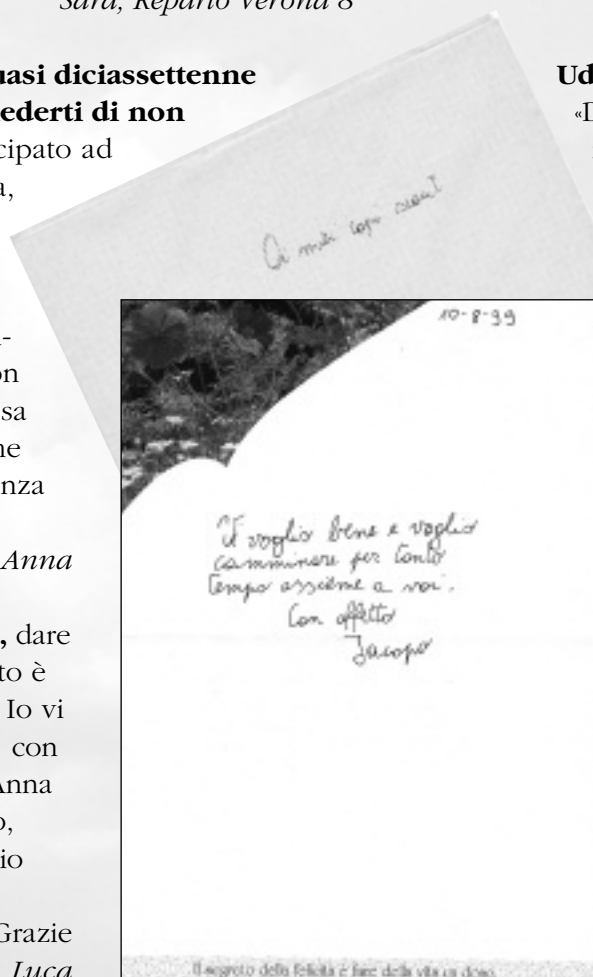 Sara, Reparto Verona 8
uasi diciassettenne
ederti di non
cipato ad
a,
n-
on
sa
ne
nza
Anna
, dare
to è
Io vi
con
Anna
o,
io
Grazie
Luca
Ud
«D
Ai miei capi scout
10-8-99
Vi voglio bene e voglio
camminare per tanto
tempo assieme a voi.
Con affetto
Jacopo
Il segreto della felicità è fare della vita un dono